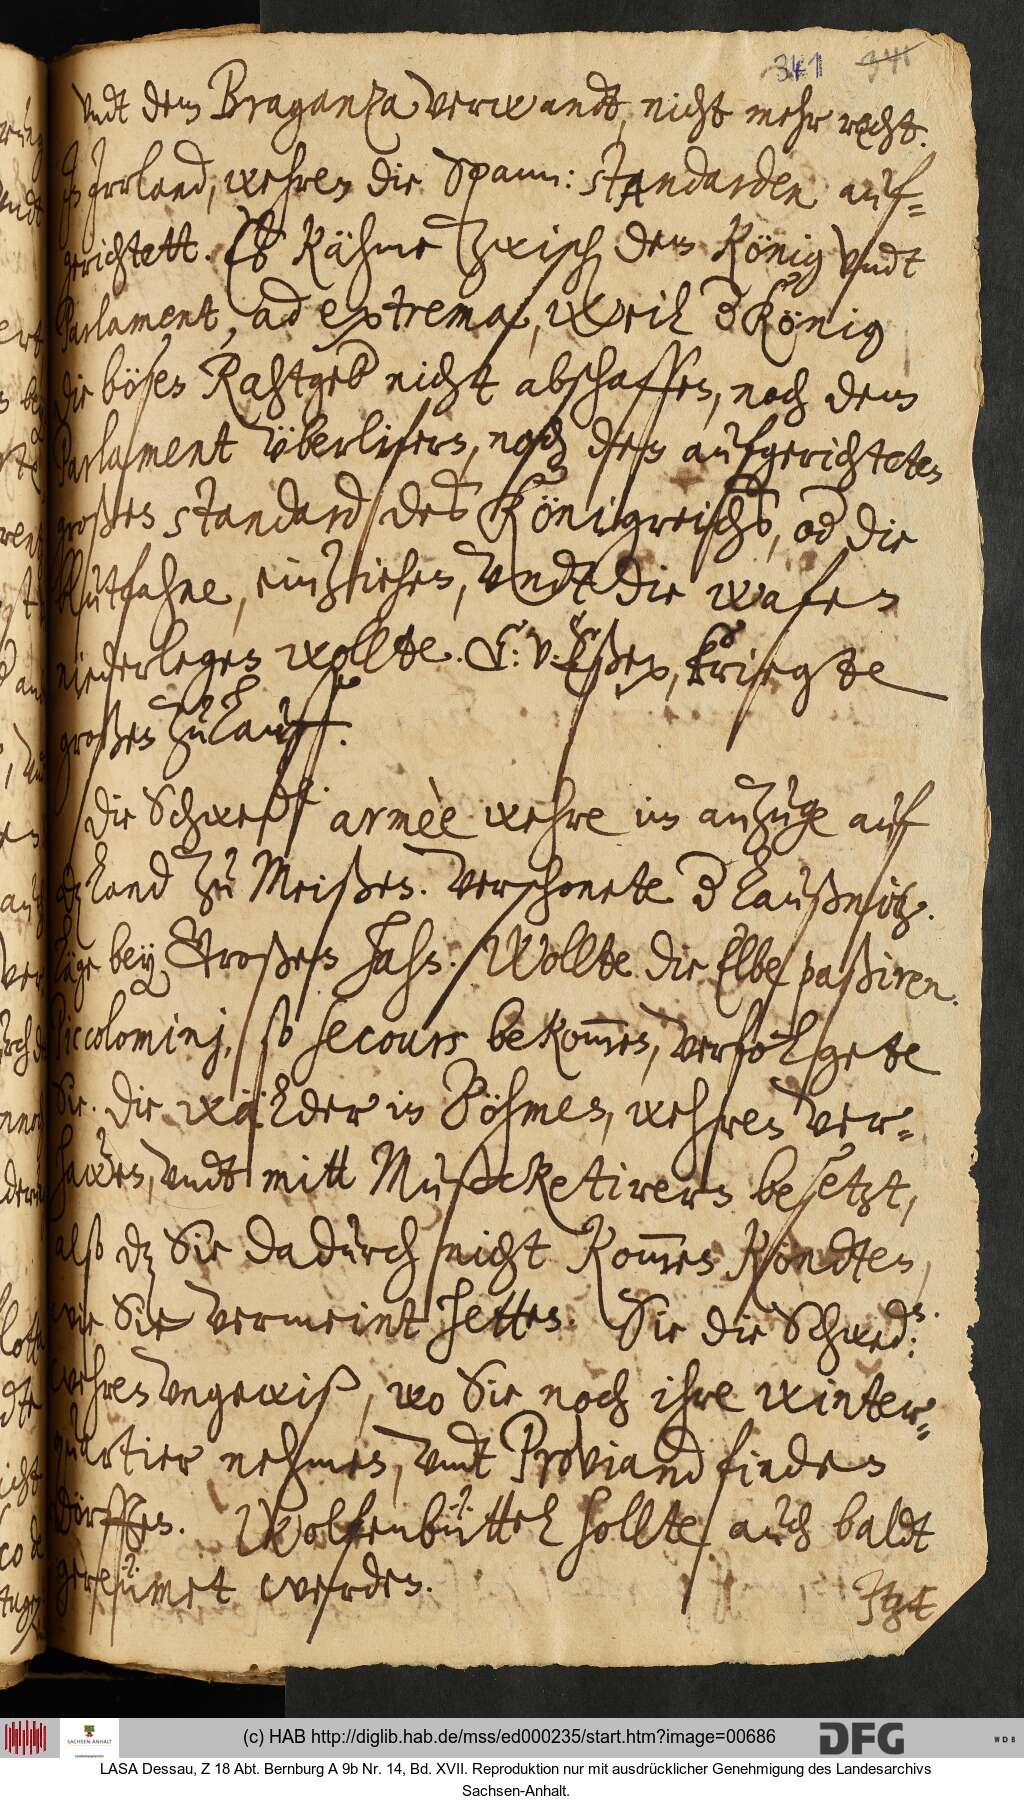 341 341
Vndt dem Braganza verwandt, nicht mehr recht.
In Irrland, wehren die Spann: standarden auf-
gerichtett. Es kähme zwisch dem König vndt
Parlament, ad extrema, weil der König
die bösen Rahtgeb nicht abschaffen, noch dem
Parlament überlifern, noch den aufgerichteten
großen standard des Königreichs, od die
Blutfahne, einziehen, vndt die wafen
niederlegen wollte. C: v: Eßex, kriegte
großen zulauff.
Die Schwed: armèe wehre im anzuge auf
dz Land zu Meißen. Verschonete d Laußnitz.
Läge bey Großen Hahn. Wollte die Elbe paßiren.
Piccolominj, so secours bekommen, verfolgete
Sie. Die wälder in Böhmen, wehren ver-
hawen, vndt mitt Mußcketirern besetzt,
also dz Sie dadurch nicht kommen köndten,
wie Sie vermeint hetten. Sie die Schwed:
wehren vngewiß, wo Sie noch ihre winter-
quartier nehmen, vndt Proviand finden
dörffen. Wolfenbüttel sollte auch baldt
gereümet werden.
Jtzt
(c) HAB http://diglib.hab.de/mss/ed000235/start.htm?image=00686
SACHSEN-ANHALT
DFG
WDB
LASA Dessau, Z 18 Abt. Bernburg A 9b Nr. 14, Bd. XVII. Reproduktion nur mit ausdrücklicher Genehmigung des Landesarchivs
Sachsen-Anhalt.